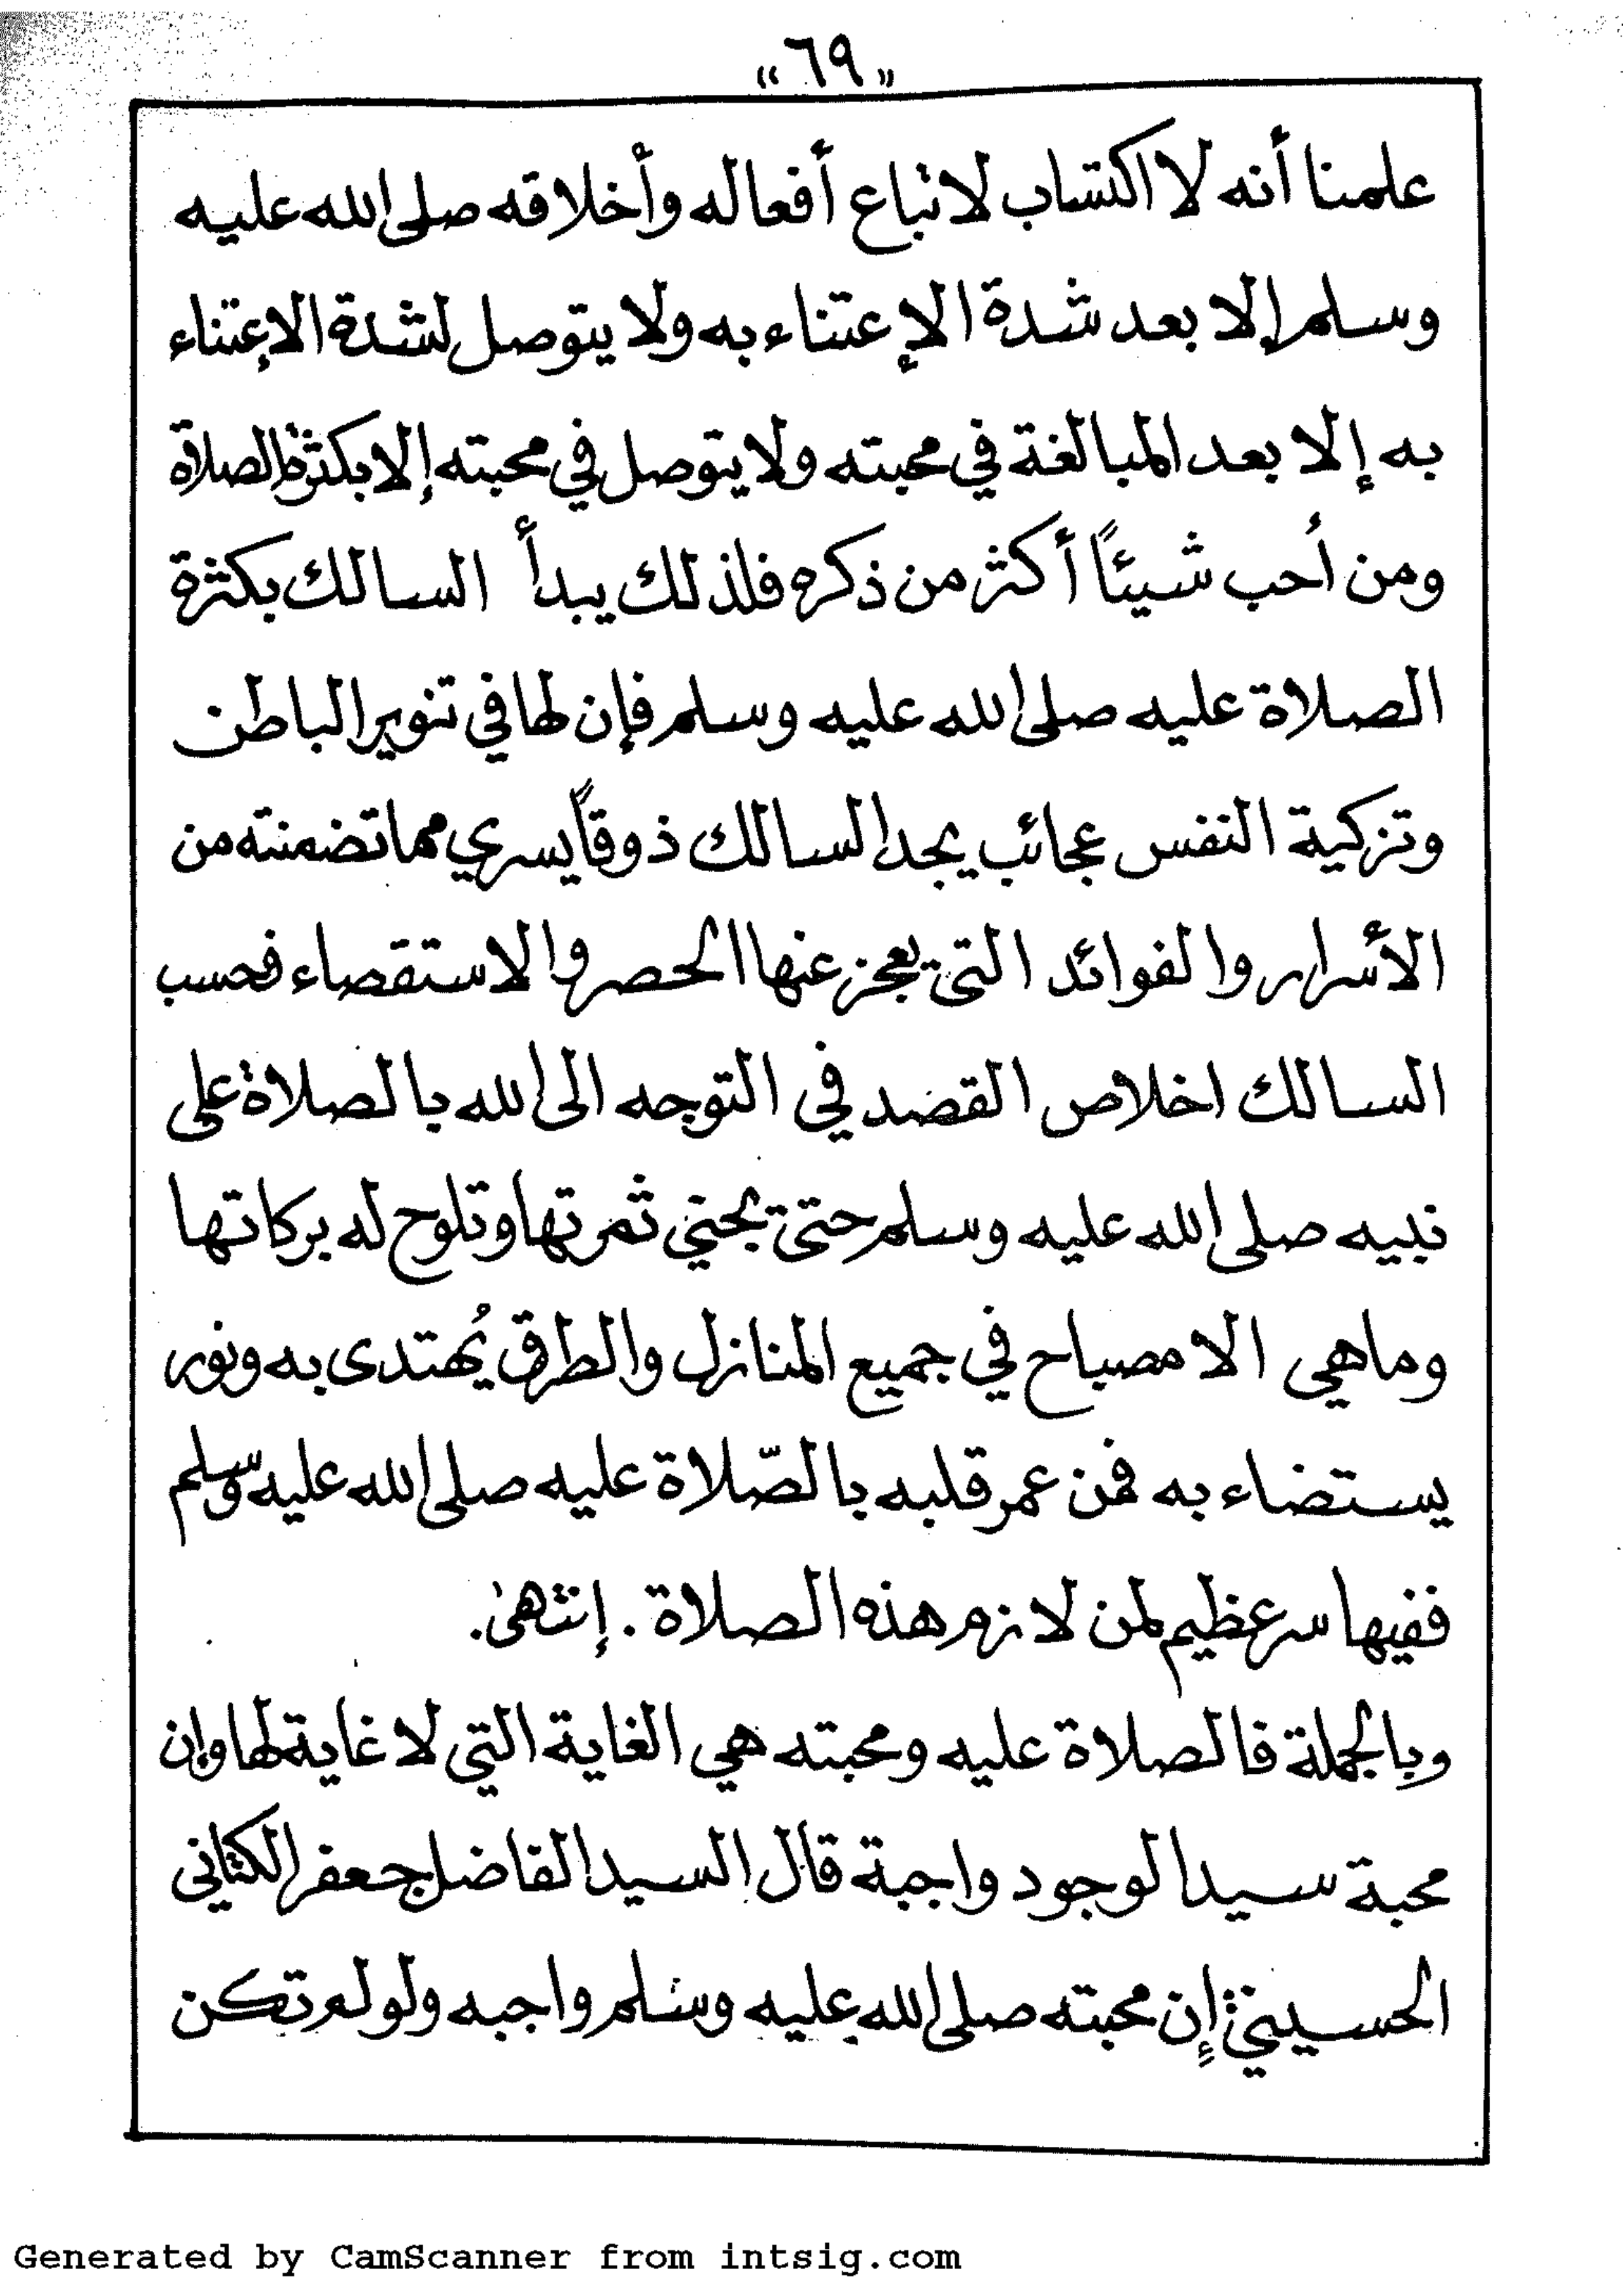 «٦٩»
علمنا أنه لا اكتساب لاتباع أفعاله وأخلاقه صلى الله عليه
وسلم إلا بعد شدة الإعتناء به ولا يتوصل لشدة الإعتناء
به إلا بعد المبالغة في محبته ولا يتوصل في محبته إلا بكثرة الصلاة
ومن أحب شيئاً أكثر من ذكره فلذلك يبدأ السالك بكثرة
الصلاة عليه صلى الله عليه وسلم فإن لها في تنوير الباطن
وتزكية النفس عجائب يجد السالك ذوقاً يسري مما تضمنته من
الأسرار والفوائد التي يعجز عنها الحصر والاستقصاء فحسب
السالك اخلاص القصد في التوجه الى الله بالصلاة على
نبيه صلى الله عليه وسلم حتى يجني ثمرتها وتلوح له بركاتها
وماهي الا مصباح في جميع المنازل والطرق يُهتدى به ونور
يستضاء به فمن عمر قلبه بالصّلاة عليه صلى الله عليه وسلم
ففيها سر عظيم لمن لازم هذه الصلاة . إنتهى .
وبالجملة فالصلاة عليه ومحبته هي الغاية التي لا غاية لها وإن
محبة سيد الوجود واجبة قال السيد الفاضل جعفر الكتاني
الحسيني إن محبته صلى الله عليه وسلم واجبه ولو لم تكن
Generated by CamScanner from intsig.com